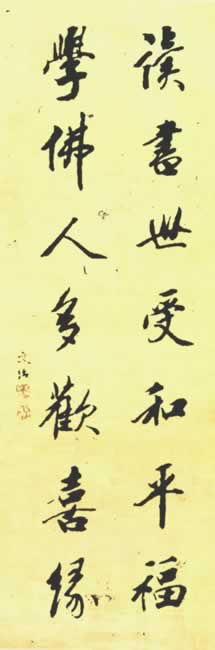 讀書世受和平福
學佛人多歡喜緣
文治